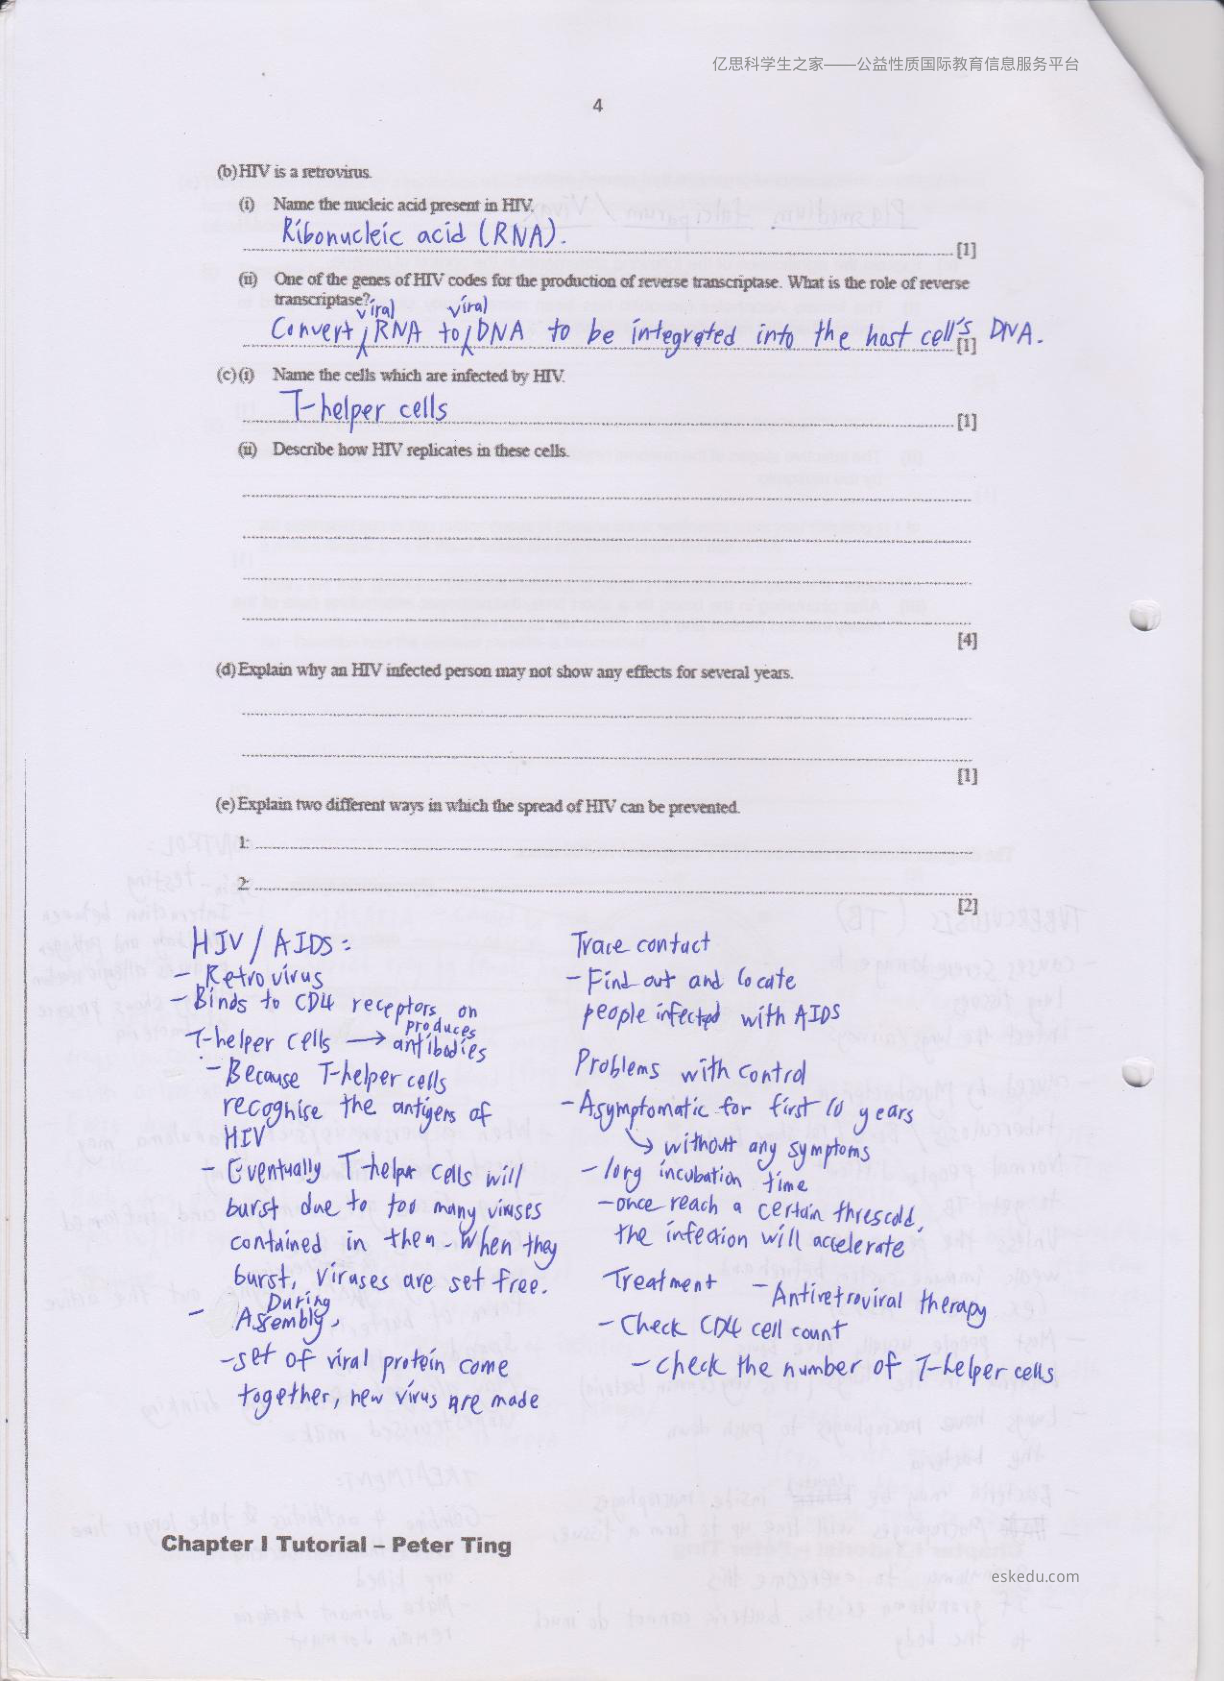 亿思科学生之家——公益性质国际教育信息服务平台
4
(b) HIV is a retrovirus.
(i) Name the nucleic acid present in HIV.
Ribonucleic acid (RNA).
[1]
(ii) One of the genes of HIV codes for the production of reverse transcriptase. What is the role of reverse
transcriptase?
Convert viral RNA to viral DNA to be integrated into the host cell's DNA.
[1]
(c) (i) Name the cells which are infected by HIV.
T-helper cells
[1]
(ii) Describe how HIV replicates in these cells.
[4]
(d) Explain why an HIV infected person may not show any effects for several years.
[1]
(e) Explain two different ways in which the spread of HIV can be prevented.
1:
2:
[2]
HIV / AIDS:
- Retrovirus
- Binds to CD4 receptors on
T-helper cells → produces antibodies
- Because T-helper cells
recognise the antigens of
HIV
- Eventually T-helper cells will
burst due to too many viruses
contained in them. When they
burst, viruses are set free.
- During
Assembly,
- set of viral protein come
together, new virus are made
Trace contact
- Find out and locate
people infected with AIDS
Problems with control
- Asymptomatic for first 10 years
↳ without any symptoms
- long incubation time
- once reach a certain threscold,
the infection will accelerate
Treatment - Antiretroviral therapy
- Check CD4 cell count
- check the number of T-helper cells
Chapter I Tutorial – Peter Ting
eskedu.com